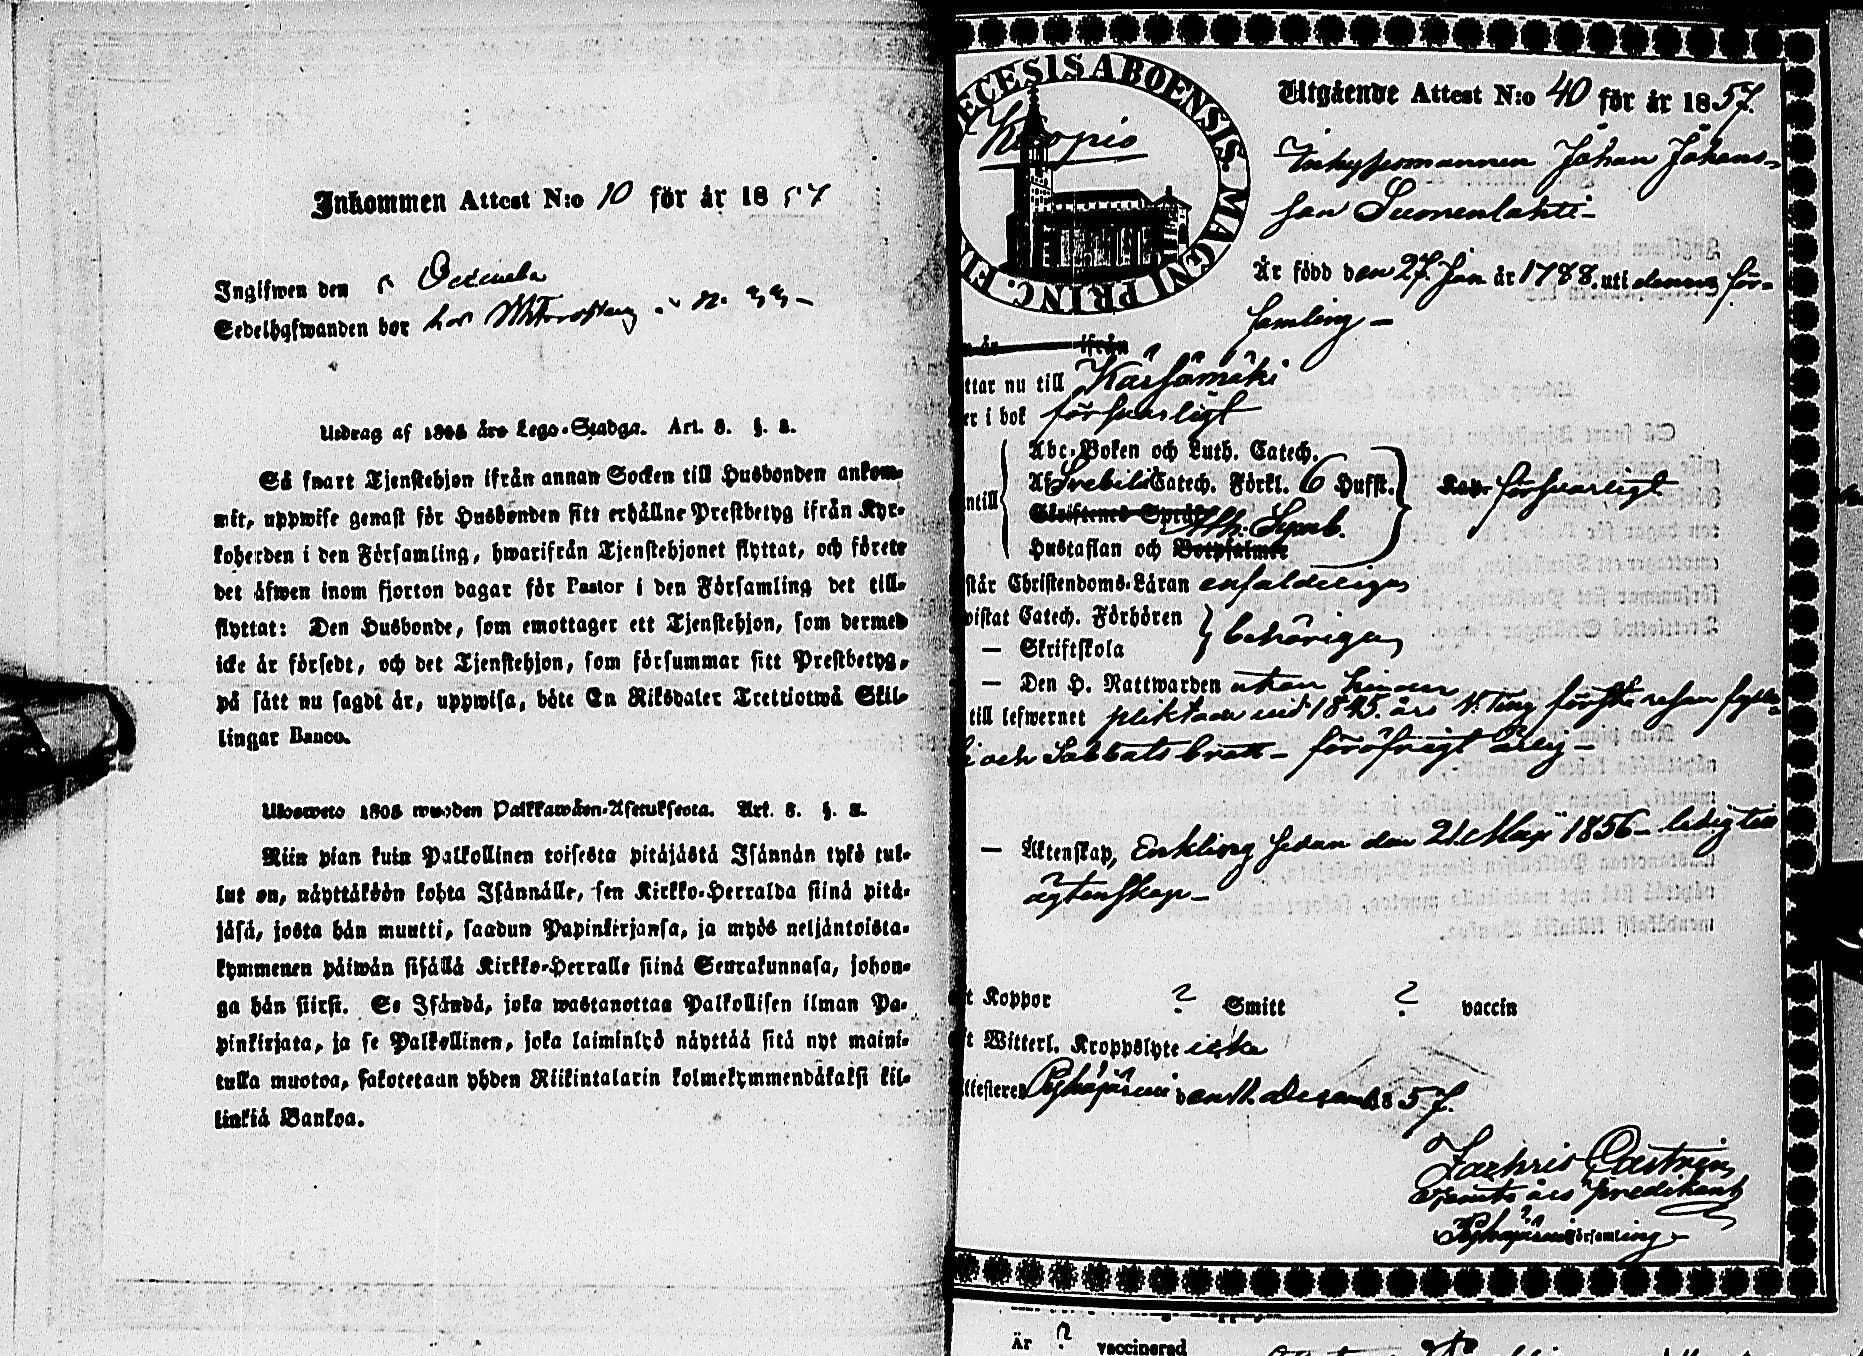 Inkommen Attest N:o 10 för år 1857
Ingifwen den Decembr
Sedelhafwanden bor hos N:
Utdrag af 1805 års Lego-Stadga. Art. 3. §. 2.
Så snart Tjenstehjon ifrån annan Socken till Husbonden ankom-
mit, uppwise genast för Husbonden sitt erhållne Prestbetyg ifrån Kyr-
koherden i den Församling, hwarifrån Tjenstehjonet flyttat, och förete
det äfwen inom fjorton dagar för Pastor i den Församling det till-
flyttat: Den Husbonde, som emottager ett Tjenstehjon, som dermed
icke är försedt, och det Tjenstehjon, som försummar sitt Prestbetyg,
på sätt nu sagdt är, uppwisa, böte En Riksdaler Trettiotwå Skil-
lingar Banco.
Ulosweto 1805 wuoden Palkkawäen-Asetuksesta. Art. 3. §. 2.
Niin pian kuin Palkollinen toisesta pitäjästä Isännän tykö tul-
lut on, näyttäköön kohta Isännälle, sen Kirkko-Herralda siinä pitä-
jäsä, josta hän muutti, saadun Papinkirjansa, ja myös neljäntoista-
kymmenen päiwän sisällä Kirkko-Herralle siinä Seurakunnasa, johon-
ga hän siirsi. Se Isändä, joka wastanottaa Palkollisen ilman Pa-
pinkirjata, ja se Palkollinen, joka laiminlyö näyttää sitä nyt maini-
tulla muotoa, sakotetaan yhden Riikintalarin kolmekymmendäkaksi kil-
linkiä Bankoa.
ECESIS ABOENSIS. MAGNI PRINC. F
Utgående Attest N:o 40 för år 1857.
Inhysesmannen Johan Johans-
son Suonenlahti-
Är född den 27. Jan. år 1788. uti denna för-
samling –
ifrån
ttar nu till Kärsämäki
er i bok försvarligt
Abc-Boken och Luth. Catech.
Af Srebilii Catech. Förkl. 6 Hufst.
försvarligt
ntill
Ath. Symb.
Hustaflan och Botpsalmer
står Christendoms-Läran enfaldeligen
wistat Catech. Förhören
behörigen
— Skriftskola
— Den H. Nattwarden utan hinder
till lefwernet pliktade vid 1845. års V. Ting första resan fylle-
i och Sabbatsbrott – föröfrigt ärlig –
— Äktenskap, Enkling sedan den 21. Maji 1856 – ledig till
ägtenskap –
t Koppor ? Smitt ? vaccin
t Witterl. Kroppslyte icke
ttesteres Pyhäjärvi den 11. December 1857.
Zachris Castrén
årspredikant
Pyhäjärvi församling –
Är ? vaccinerad